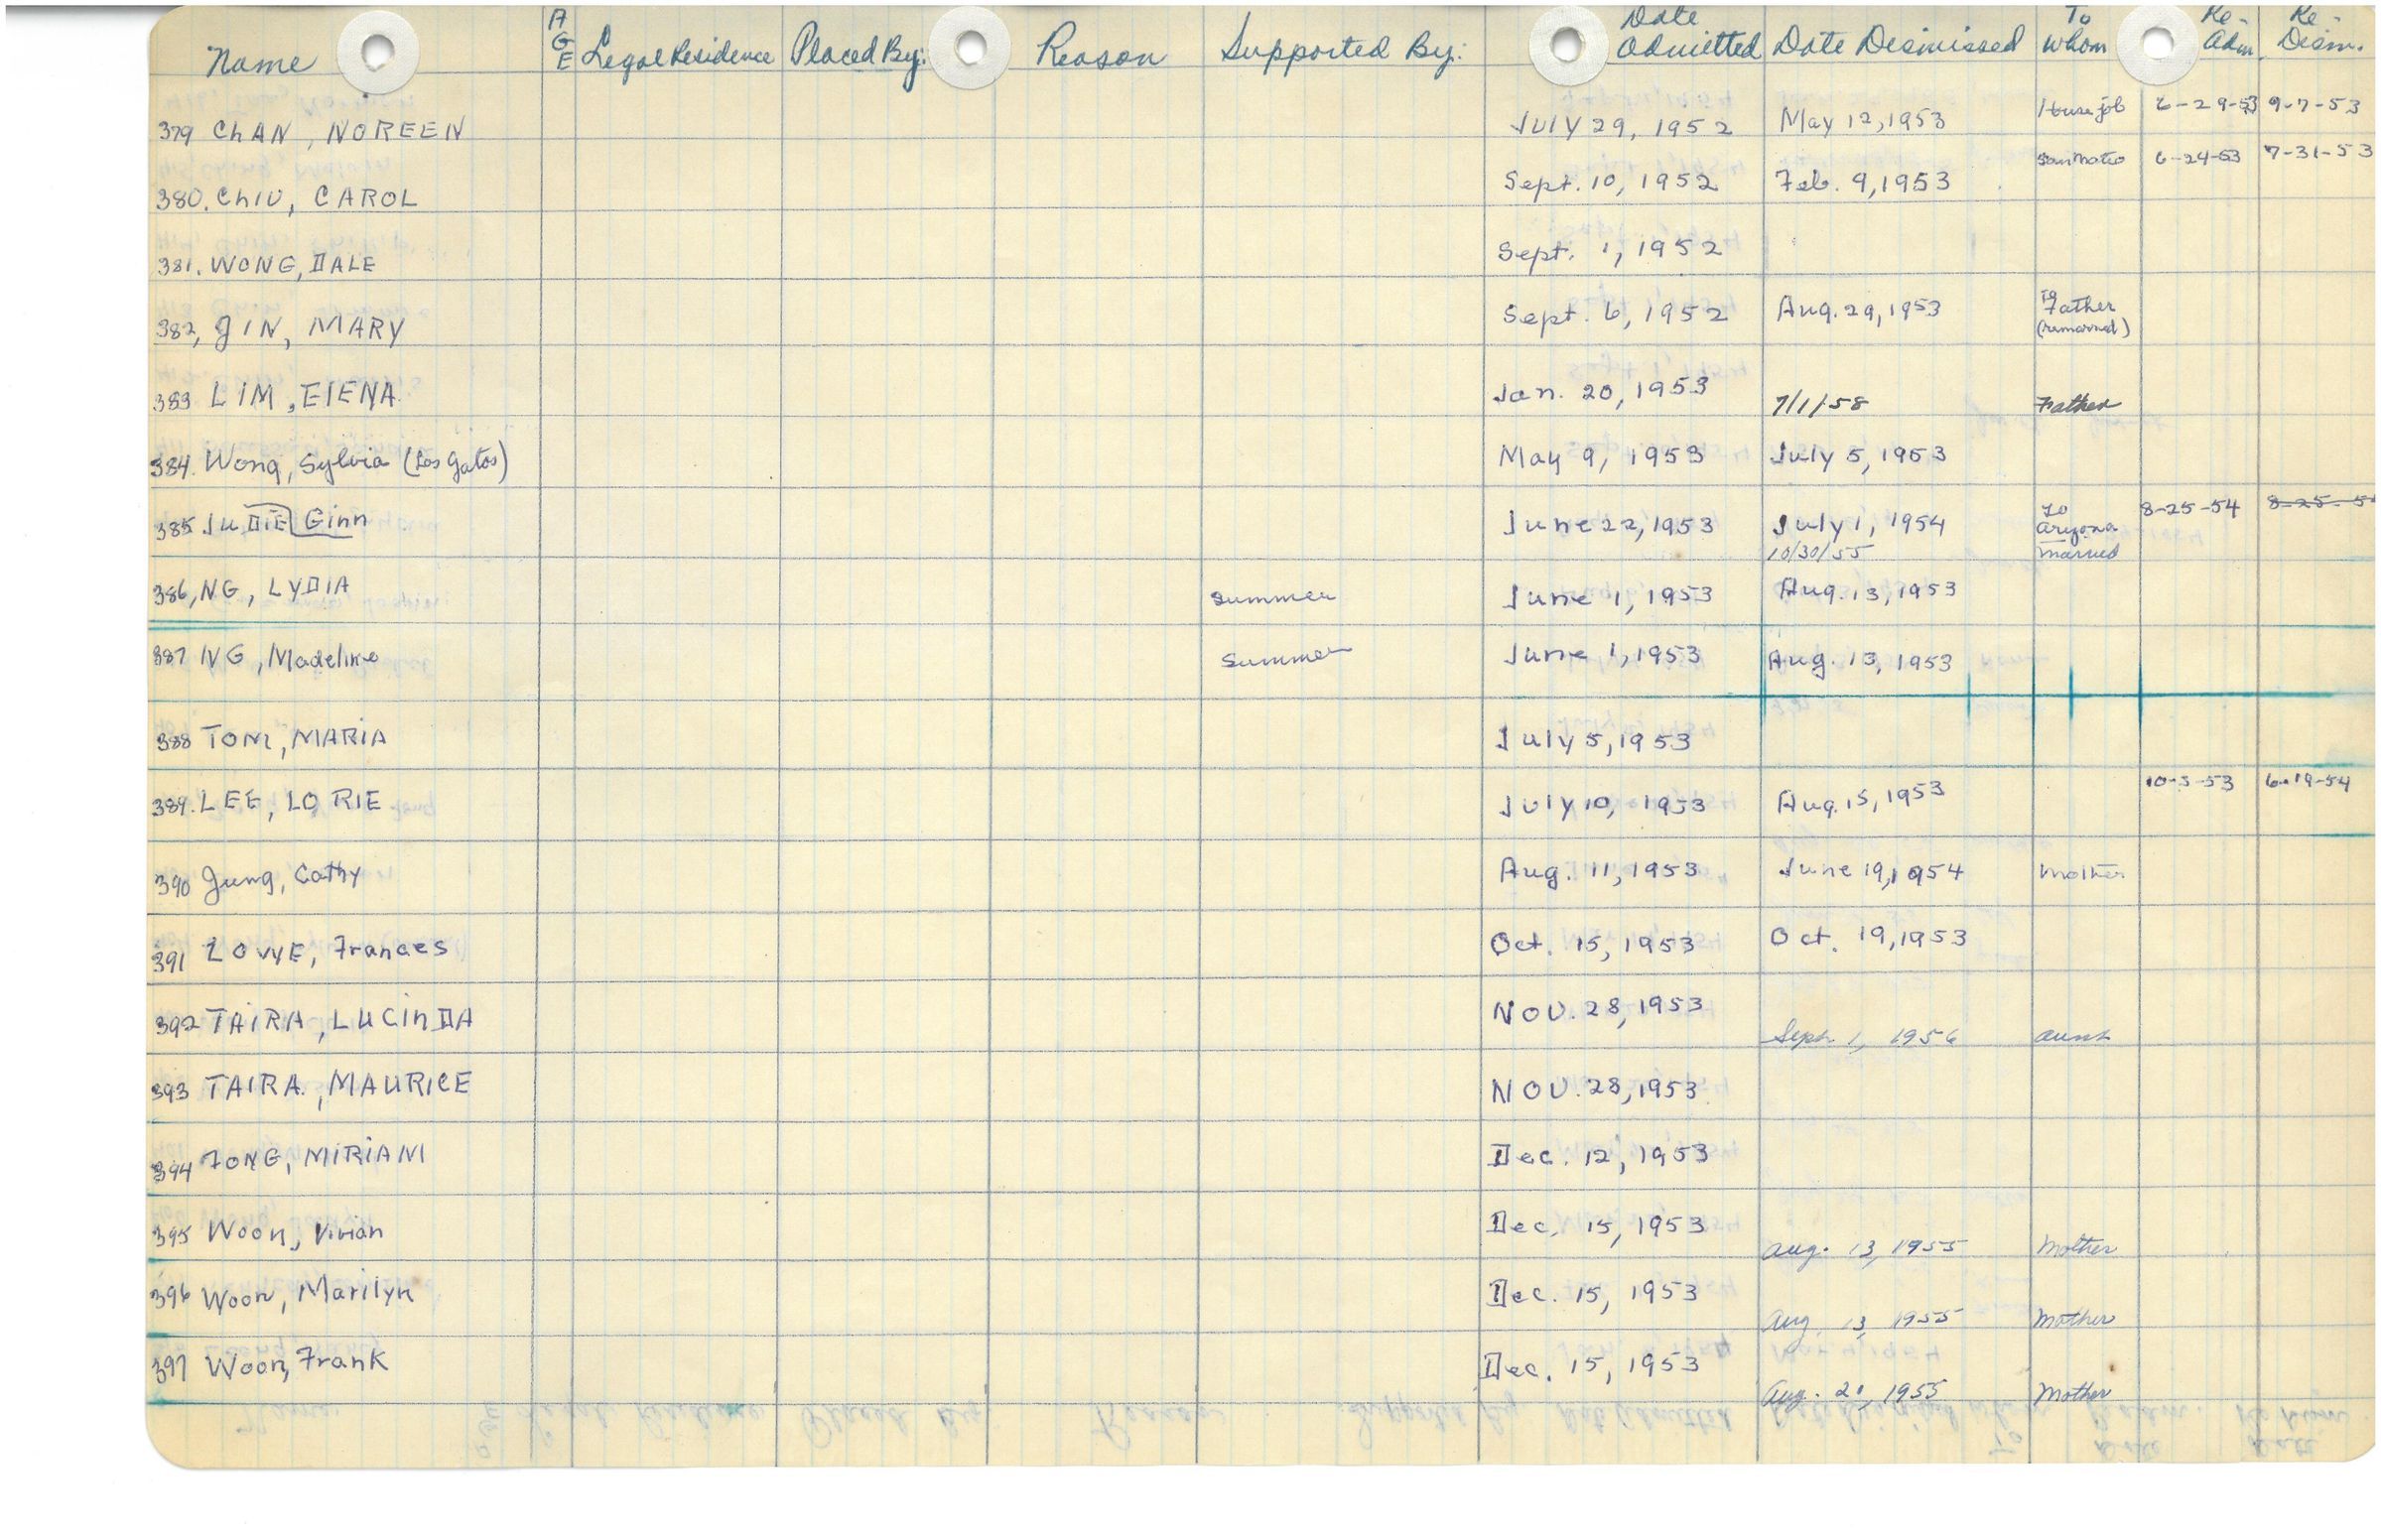 Name AGE Legal Residence Placed By: Reason Supported By: Date Admitted Date Dismissed To Whom Re-Adm. Re-Dism.
379 ChAN, NOREEN July 29, 1952 May 12, 1953 House job 6-29-53 9-7-53
380. ChIU, CAROL Sept. 10, 1952 Feb. 9, 1953 San Mateo 6-24-53 7-31-53
381. WONG, DALE Sept. 1, 1952
382, GIN, MARY Sept. 6, 1952 Aug. 29, 1953 To Father (remarried)
383 LIM, ElENA Jan. 20, 1953 7/1/58 Father
384. Wong, Sylvia (Los Gatos) May 9, 1953 July 5, 1953
385 JuDiE Ginn June 22, 1953 July 1, 1954 To Aryona 8-25-54 8-25-5
10/30/55 Married
386, NG, LYDIA Summer June 1, 1953 Aug. 13, 1953
387 NG, Madeline Summer June 1, 1953 Aug. 13, 1953
388 TOM, MARIA July 5, 1953
389. LEE, LORIE July 10, 1953 Aug. 15, 1953 10-3-53 6-19-54
390 Jung, Cathy Aug. 11, 1953 June 19, 1954 Mother
391 LOVYE, Frances Oct. 15, 1953 Oct. 19, 1953
392 TAiRA, LUCinDA NOV. 28, 1953 Sept. 1, 1956 aunt
393 TAIRA, MAURICE NOV. 28, 1953
394 FONG, MiRiAM Dec. 12, 1953
395 Woon, Vivian Dec. 15, 1953 Aug. 13, 1955 Mother
396 Woon, Marilyn Dec. 15, 1953 Aug. 13, 1955 Mother
397 Woon, Frank Dec. 15, 1953 Aug. 20, 1955 Mother